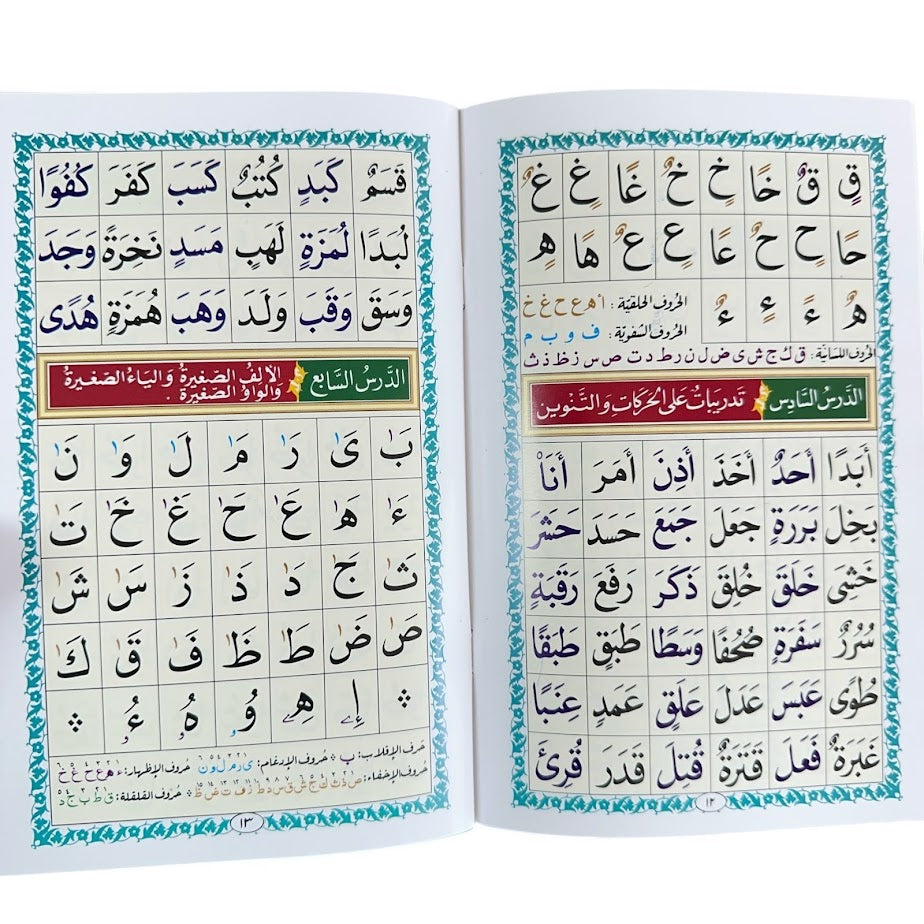 قٍ قٌ خًا خٍ خٌ غًا غٍ غٌ
حًا حٍ حٌ عًا عٍ عٌ هًا هٍ
هٌ ءً ءٍ ءٌ
الحروف الحلقيّة : أ ه ع ح غ خ
الحروف الشفويّة : ف و ب م
الحروف اللسانيّة: ق ك ج ش ى ض ل ن ر ط د ت ص س ز ظ ذ ث
الدَّرسُ السَّادِس تَدرِيبَاتٌ عَلَى الْحَرَكَاتِ وَالتَّنْوِين
أَبَدًا أَحَدٌ أَخَذَ أَذِنَ أَمَرَ أَنَا۠
بَخِلَ بَرَرَةٍ جَعَلَ جَمَعَ حَسَدَ حَشَرَ
خَشِىَ خَلَقَ خُلِقَ ذَكَرَ رَفَعَ رَقَبَةٍ
سُرُرٌ سَفَرَةٍ صُحُفًا وَسَطًا طَبَقٍ طَبَقًا
طُوًى عَبَسَ عَدَلَ عَلَقٍ عَمَدٍ عِنَبًا
غَبَرَةٌ فَعَلَ قَتَرَةٌ قُتِلَ قَدَرَ قُرِئَ
١٢
قَسَمٌ كَبَدٍ كُتُبٌ كَسَبَ كَفَرَ كُفُوًا
لُبَدًا لُمَزَةٍ لَهَبٍ مَسَدٍ نَخِرَةً وَجَدَ
وَسَقَ وَقَبَ وَلَدَ وَهَبَ هُمَزَةٍ هُدًى
الدَّرسُ السَّابِع الاَلِفُ الصَّغِيرَةُ وَاليَاءُ الصَّغِيرَةُ
وَالوَاوُ الصَّغِيرَةُ .
بٰ ىٰ رٰ مٰ لٰ وٰ نٰ
ءٰ هٰ عٰ حٰ غٰ خٰ تٰ
ثٰ جٰ دٰ ذٰ زٰ سٰ شٰ
صٰ ضٰ طٰ ظٰ فٰ قٰ كٰ
إِۦ هِۦ وُۥ هُۥ ءُۥ
حَرف الإقلاب: ب حُروف الإدغام: ى ر م ل و ن حُروف الإظهار: ء ه ع ح غ خ
حُروف الإخفاء: ص ذ ث ك ج ش ق س د ط ز ف ت ض ظ حُروف القلقلة: ق ط ب ج د
١٣